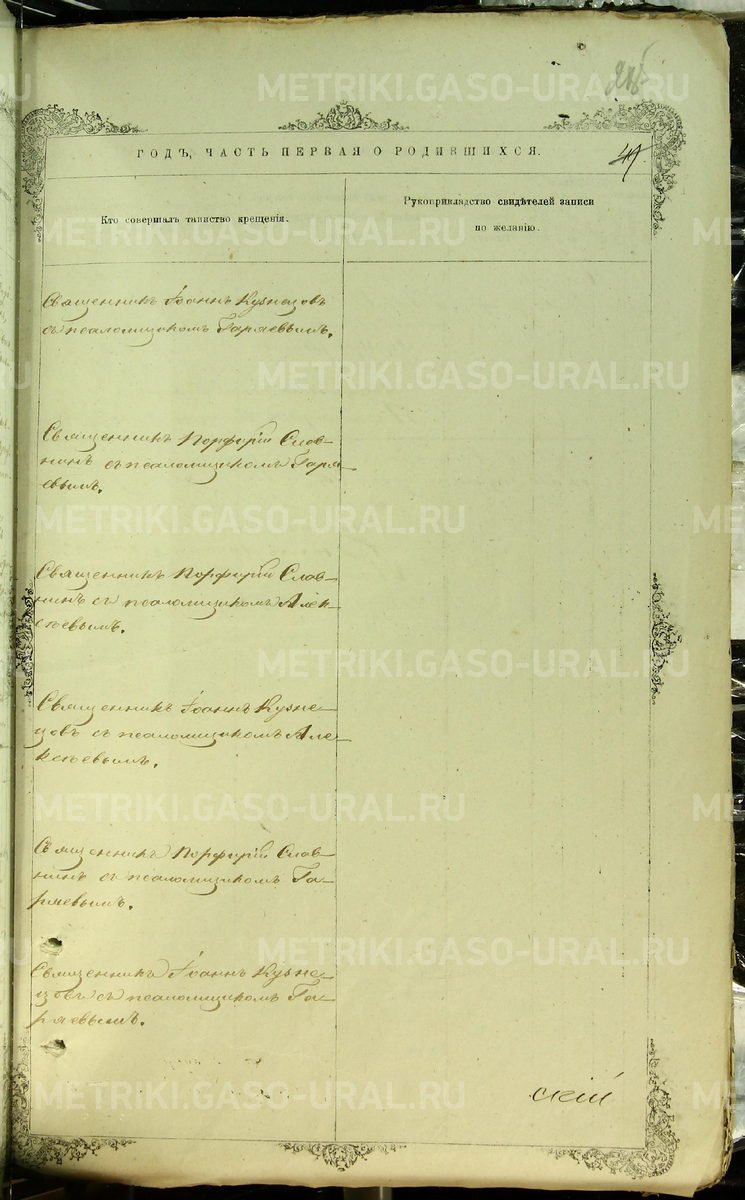 METRIKI.GASO-URAL.RU
ГОДЪ, ЧАСТЬ ПЕРВАЯ О РОДИВШИХСЯ.
Кто совершалъ таинство крещенія.
Рукоприкладство свидѣтелей записи
по желанію.
Священникъ Іоаннъ Кузнецовъ
съ псаломщикомъ Гаряевымъ.
Священникъ Порфирій Слав-
нинъ съ псаломщикомъ Гаря-
евымъ.
Священникъ Порфирій Слав-
нинъ съ псаломщикомъ Алек-
сѣевымъ.
Священникъ Іоаннъ Кузне-
цовъ съ псаломщикомъ Але-
ксѣевымъ.
Священникъ Порфирій Слав-
нинъ съ псаломщикомъ Га-
ряевымъ.
Священникъ Іоаннъ Кузне-
цовъ съ псаломщикомъ Га-
ряевымъ.
скій